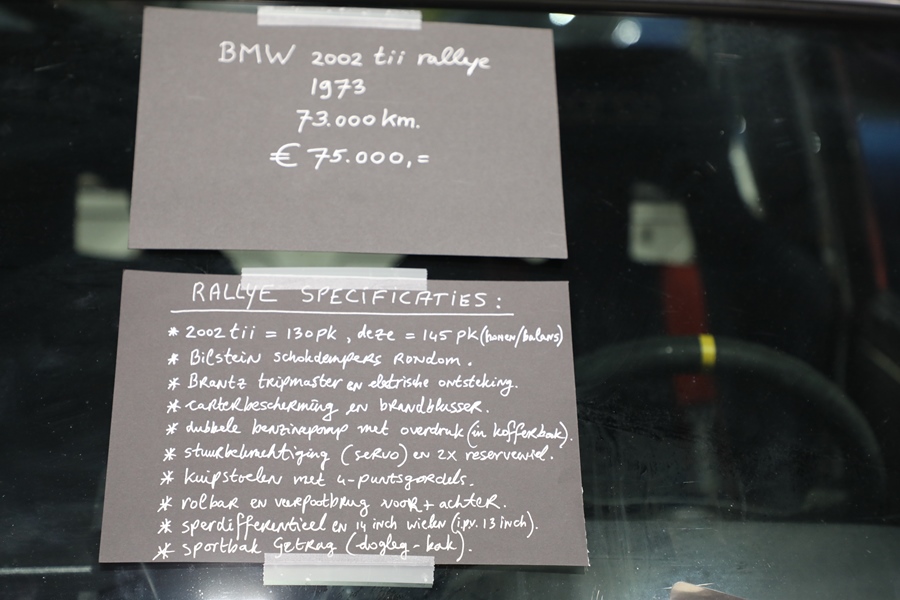 BMW 2002 tii rallye
1973
73.000 km.
€ 75.000,=
RALLYE SPECIFICATIES:
* 2002 tii = 130 pk, deze = 145 pk (honen/balans)
* Bilstein schokdempers rondom.
* Brantz tripmaster en elektrische ontsteking.
* carterbescherming en brandblusser.
* dubbele benzinepomp met overdruk (in kofferbak).
* stuurbekrachtiging (servo) en 2x reservewiel.
* kuipstoelen met 4-puntsgordels.
* rolbar en veerpootbrug voor + achter.
* sperdifferentieel en 14 inch wielen (i.p.v. 13 inch).
* sportbak Getrag (dogleg-bak).